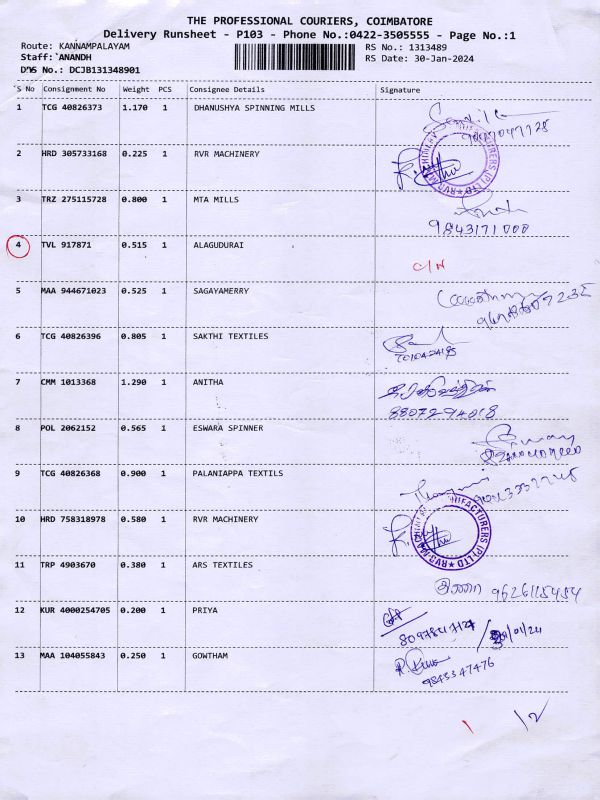 THE PROFESSIONAL COURIERS, COIMBATORE
Delivery Runsheet - P103 - Phone No.:0422-3505555 - Page No.:1
Route: KANNAMPALAYAM
RS No.: 1313489
Staff: ANANDH
RS Date: 30-Jan-2024
DMS No.: DCJB131348901
S No Consignment No Weight PCS Consignee Details Signature
1 TCG 40826373 1.170 1 DHANUSHYA SPINNING MILLS
2 HRD 305733168 0.225 1 RVR MACHINERY
3 TRZ 275115728 0.800 1 MTA MILLS
9843171000
4 TVL 917871 0.515 1 ALAGUDURAI
C/N
5 MAA 944671023 0.525 1 SAGAYAMERRY
6 TCG 40826396 0.805 1 SAKTHI TEXTILES
7 CMM 1013368 1.290 1 ANITHA
8807294018
8 POL 2062152 0.565 1 ESWARA SPINNER
9 TCG 40826368 0.900 1 PALANIAPPA TEXTILS
10 HRD 758318978 0.580 1 RVR MACHINERY
11 TRP 4903670 0.380 1 ARS TEXTILES
9626115484
12 KUR 4000254705 0.200 1 PRIYA
8097847127
13 MAA 104055843 0.250 1 GOWTHAM
9843347476